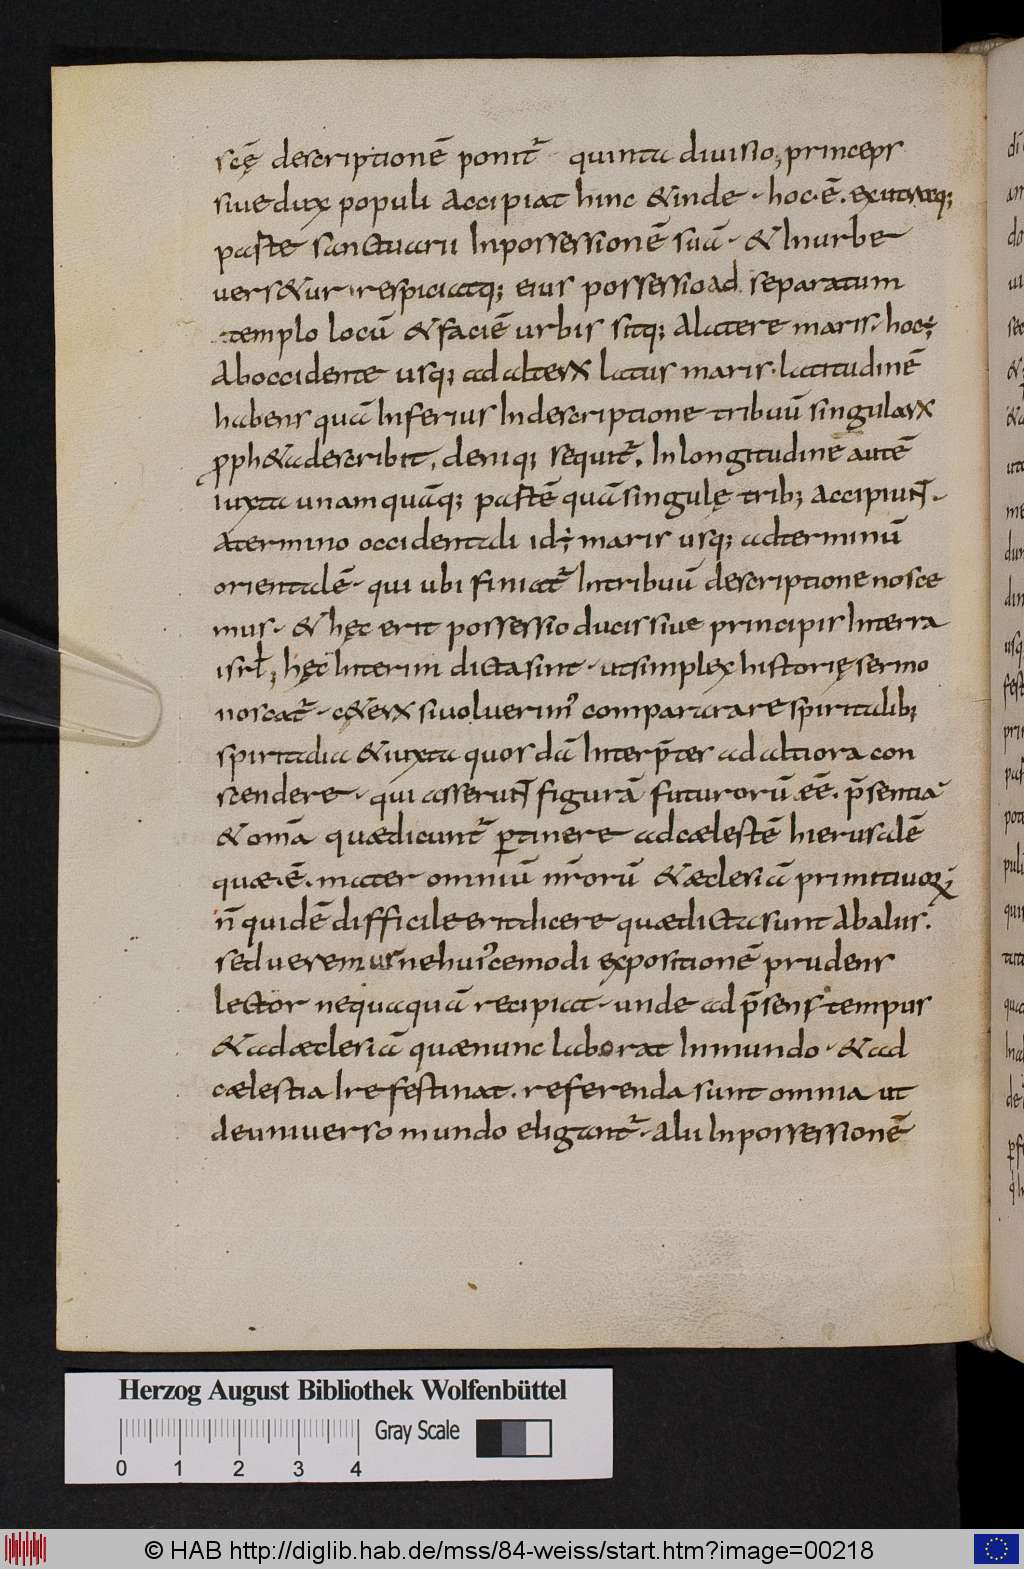 scę̄ descriptionē ponit᷑ quinta diuisio, princeps
siue dux populi accipiat hinc & inde · hoc · ē · ex utraq;
parte sanctuarii In possessionē suā · & In urbe
uers&ur respiciatq; eius possessio ad separatum
templo locū & faciē urbis sitq; a latere maris · hoc ē;
Ab occidente usq; ad alterꝝ latus maris · latitudinē
habens quā Inferius In descriptione tribuū singularꝝ
ꝓph&a describit, deniq; sequit᷑, In longitudine autē
iuxta unam quāq; partē quā singulę trib; accipiunt ·
A termino occidentali id ÷ maris usq; ad terminū
orientalē · qui ubi finiat᷑ In tribuū descriptione nosce
mus · & hęc erit possessio ducis siue principis In terra
isrł; hęc Interim dicta sint · ut simplex historię sermo
noscat᷑ · c&erꝝ si uoluerim᷒ comparare spiritalib;
spiritalia & iuxta quosdā Interp̄tes ad altiora con
scendere · qui asserunt figurā futurorū eē · p̄sentia
& omīa quæ dicunt᷑ ꝑtinere ad cælestē hierusalē
quæ · ē · mater omniū nr̄orū & æclesiā primitiuoꝝ
n̄ quidē difficile erit dicere quæ dicta sunt ab aliis ·
sed ueremur ne hui᷒cemodi expositionē prudens
lector nequaquā recipiat · unde ad p̄sens tempus
& ad æclesiā quæ nunc laborat In mundo · & ad
cælestia Ire festinat · referenda sunt omnia ut
de uniuerso mundo eligant᷑ · alii In possessionē
Herzog August Bibliothek Wolfenbüttel
Gray Scale
0 1 2 3 4
© HAB http://diglib.hab.de/mss/84-weiss/start.htm?image=00218